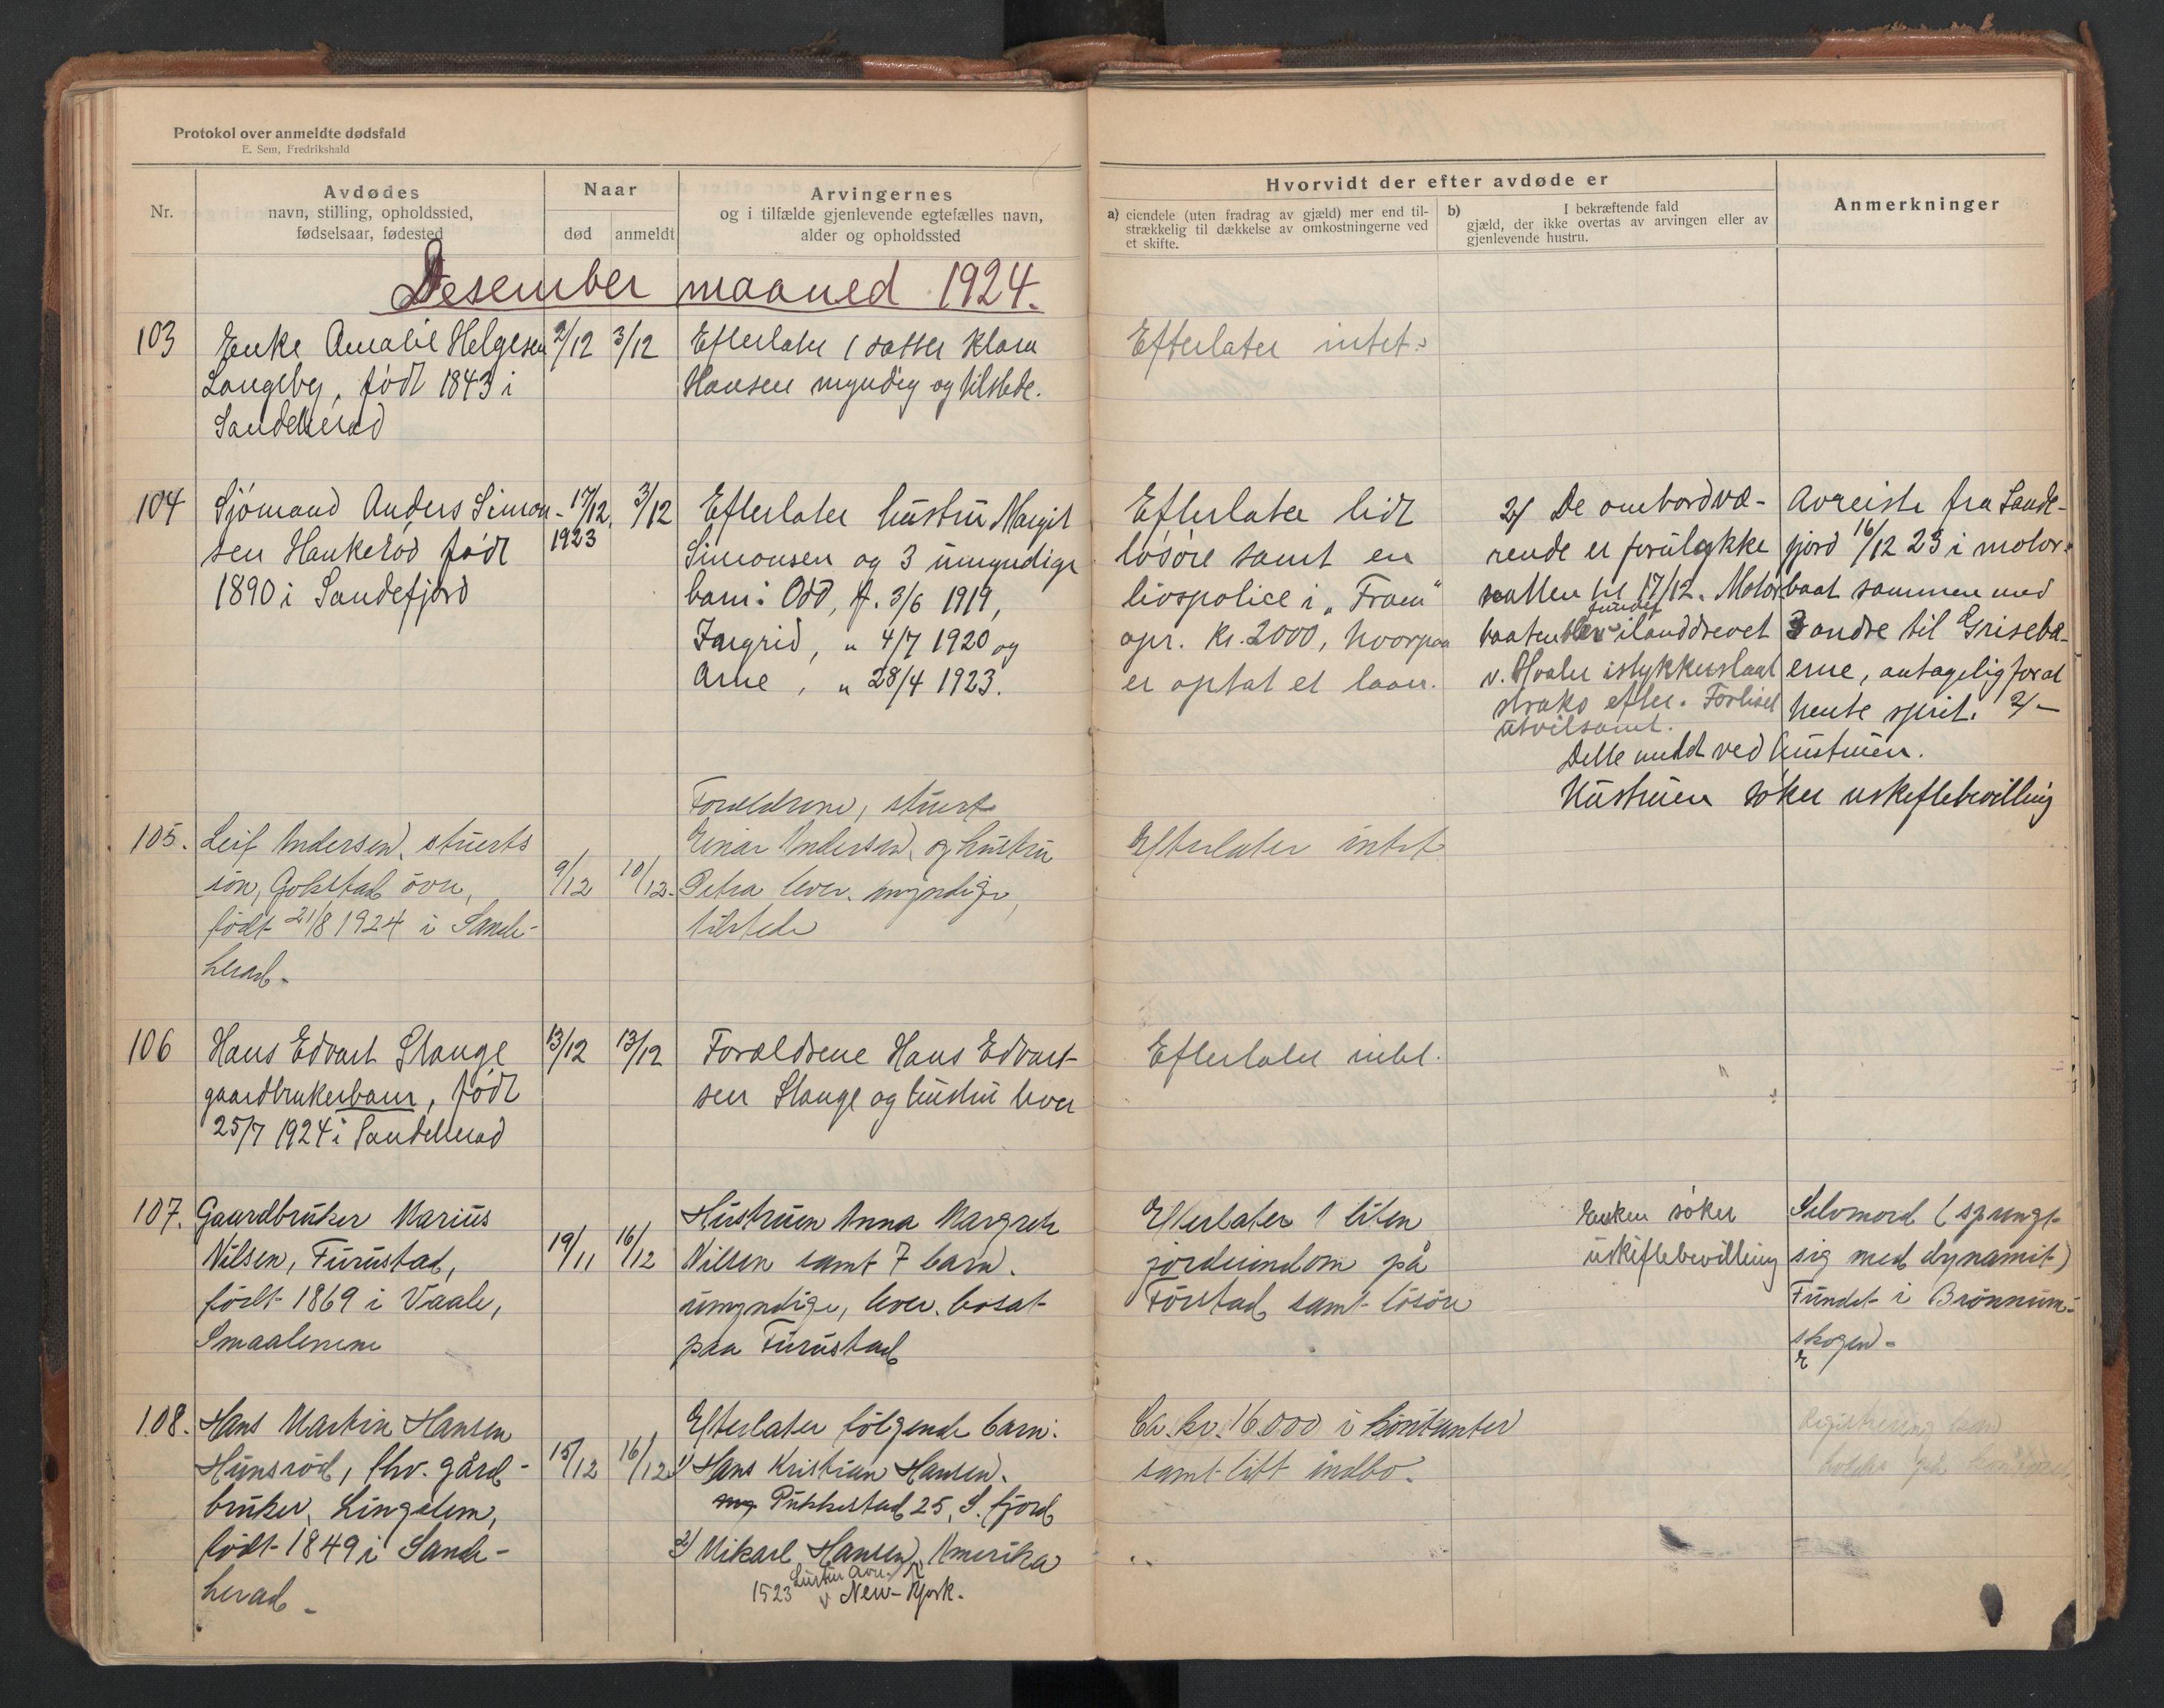 Protokol over anmeldte dødsfald
E. Sem, Fredrikshald
Nr.
Avdødes
navn, stilling, opholdssted,
fødselsaar, fødested
Naar
død
anmeldt
Arvingernes
og i tilfælde gjenlevende egtefælles navn,
alder og opholdssted
Hvorvidt der efter avdøde er
a) eiendele (uten fradrag av gjæld) mer end til-
strækkelig til dækkelse av omkostningerne ved
et skifte.
b) I bekræftende fald
gjæld, der ikke overtas av arvingen eller av
gjenlevende hustru.
Anmerkninger
Desember maaned 1924.
103
Enke Amalie Helgesen
Langeby, født 1843 i
Sandeherad
2/12
3/12
Efterlater 1 datter Klara
Hansen myndig og tilstede.
Efterlater intet.
104
Sjømand Anders Simon-
sen Haukerød født
1890 i Sandefjord
17/12
1923
3/12
Efterlater hustru Margit
Simonsen og 3 umyndige
barn: Odd, f. 3/6 1919,
Ingrid, " 4/7 1920 og
Arne, " 28/4 1923.
Efterlater lidt
løsøre samt en
livspolice i "Fram"
opr. kr. 2000, hvorpaa
er optat et laan.
2/ De ombordvæ-
rende er forulykke
natten til 17/12. Motor
baaten blev fundet ilanddrevet
v. Hvaler istykkerslaat
straks efter. Forliset
utvilsomt.
Dette meldt ved hustruen.
Hustruen søker uskiftebevilling
Avreiste fra Sande-
fjord 16/12 23 i motor-
baat sammen med
3 andre til Grisebæ-
erne, antagelig for at
hente sprit. 2/-
105.
Leif Andersen, stuerts
søn, Gokstad øvre,
født 21/8 1924 i Sande-
herad.
9/12
10/12.
Forældrene, stuert
Einar Andersen, og hustru
Petra lever. myndige,
tilstede
Efterlater intet
106
Hans Edvart Stange
gaardbrukerbarn, født
25/7 1924 i Sandeherad
13/12
13/12
Forældrene Hans Edvart-
sen Stange og hustru lever
Efterlater intet.
107.
Gaardbruker Marius
Nilsen, Furustad,
født 1869 i Vaale,
Smaalenene
19/11
16/12
Hustruen Anna Margrete
Nilsen samt 7 barn.
umyndige, lever. bosat
paa Furustad
Efterlater 1 liten
jordeiendom på
Förstad samt løsøre
Enken søker
uskiftebevilling
Selvmord (sprengt
sig med dynamit)
Fundet i Brønnum-
skogen.
108.
Hans Martin Hansen
Hunsrød, fhv. gård-
bruker, Lingelem,
født 1849 i Sande-
herad.
15/12
16/12
Efterlater følgende barn:
1) Hans Kristian Hansen.
Pukkestad 25, S. fjord
2) Mikael Hansen, Amerika
1523 New-York.
Ca. kr. 16.000 i kontanter
samt litt indbo.
Registrering